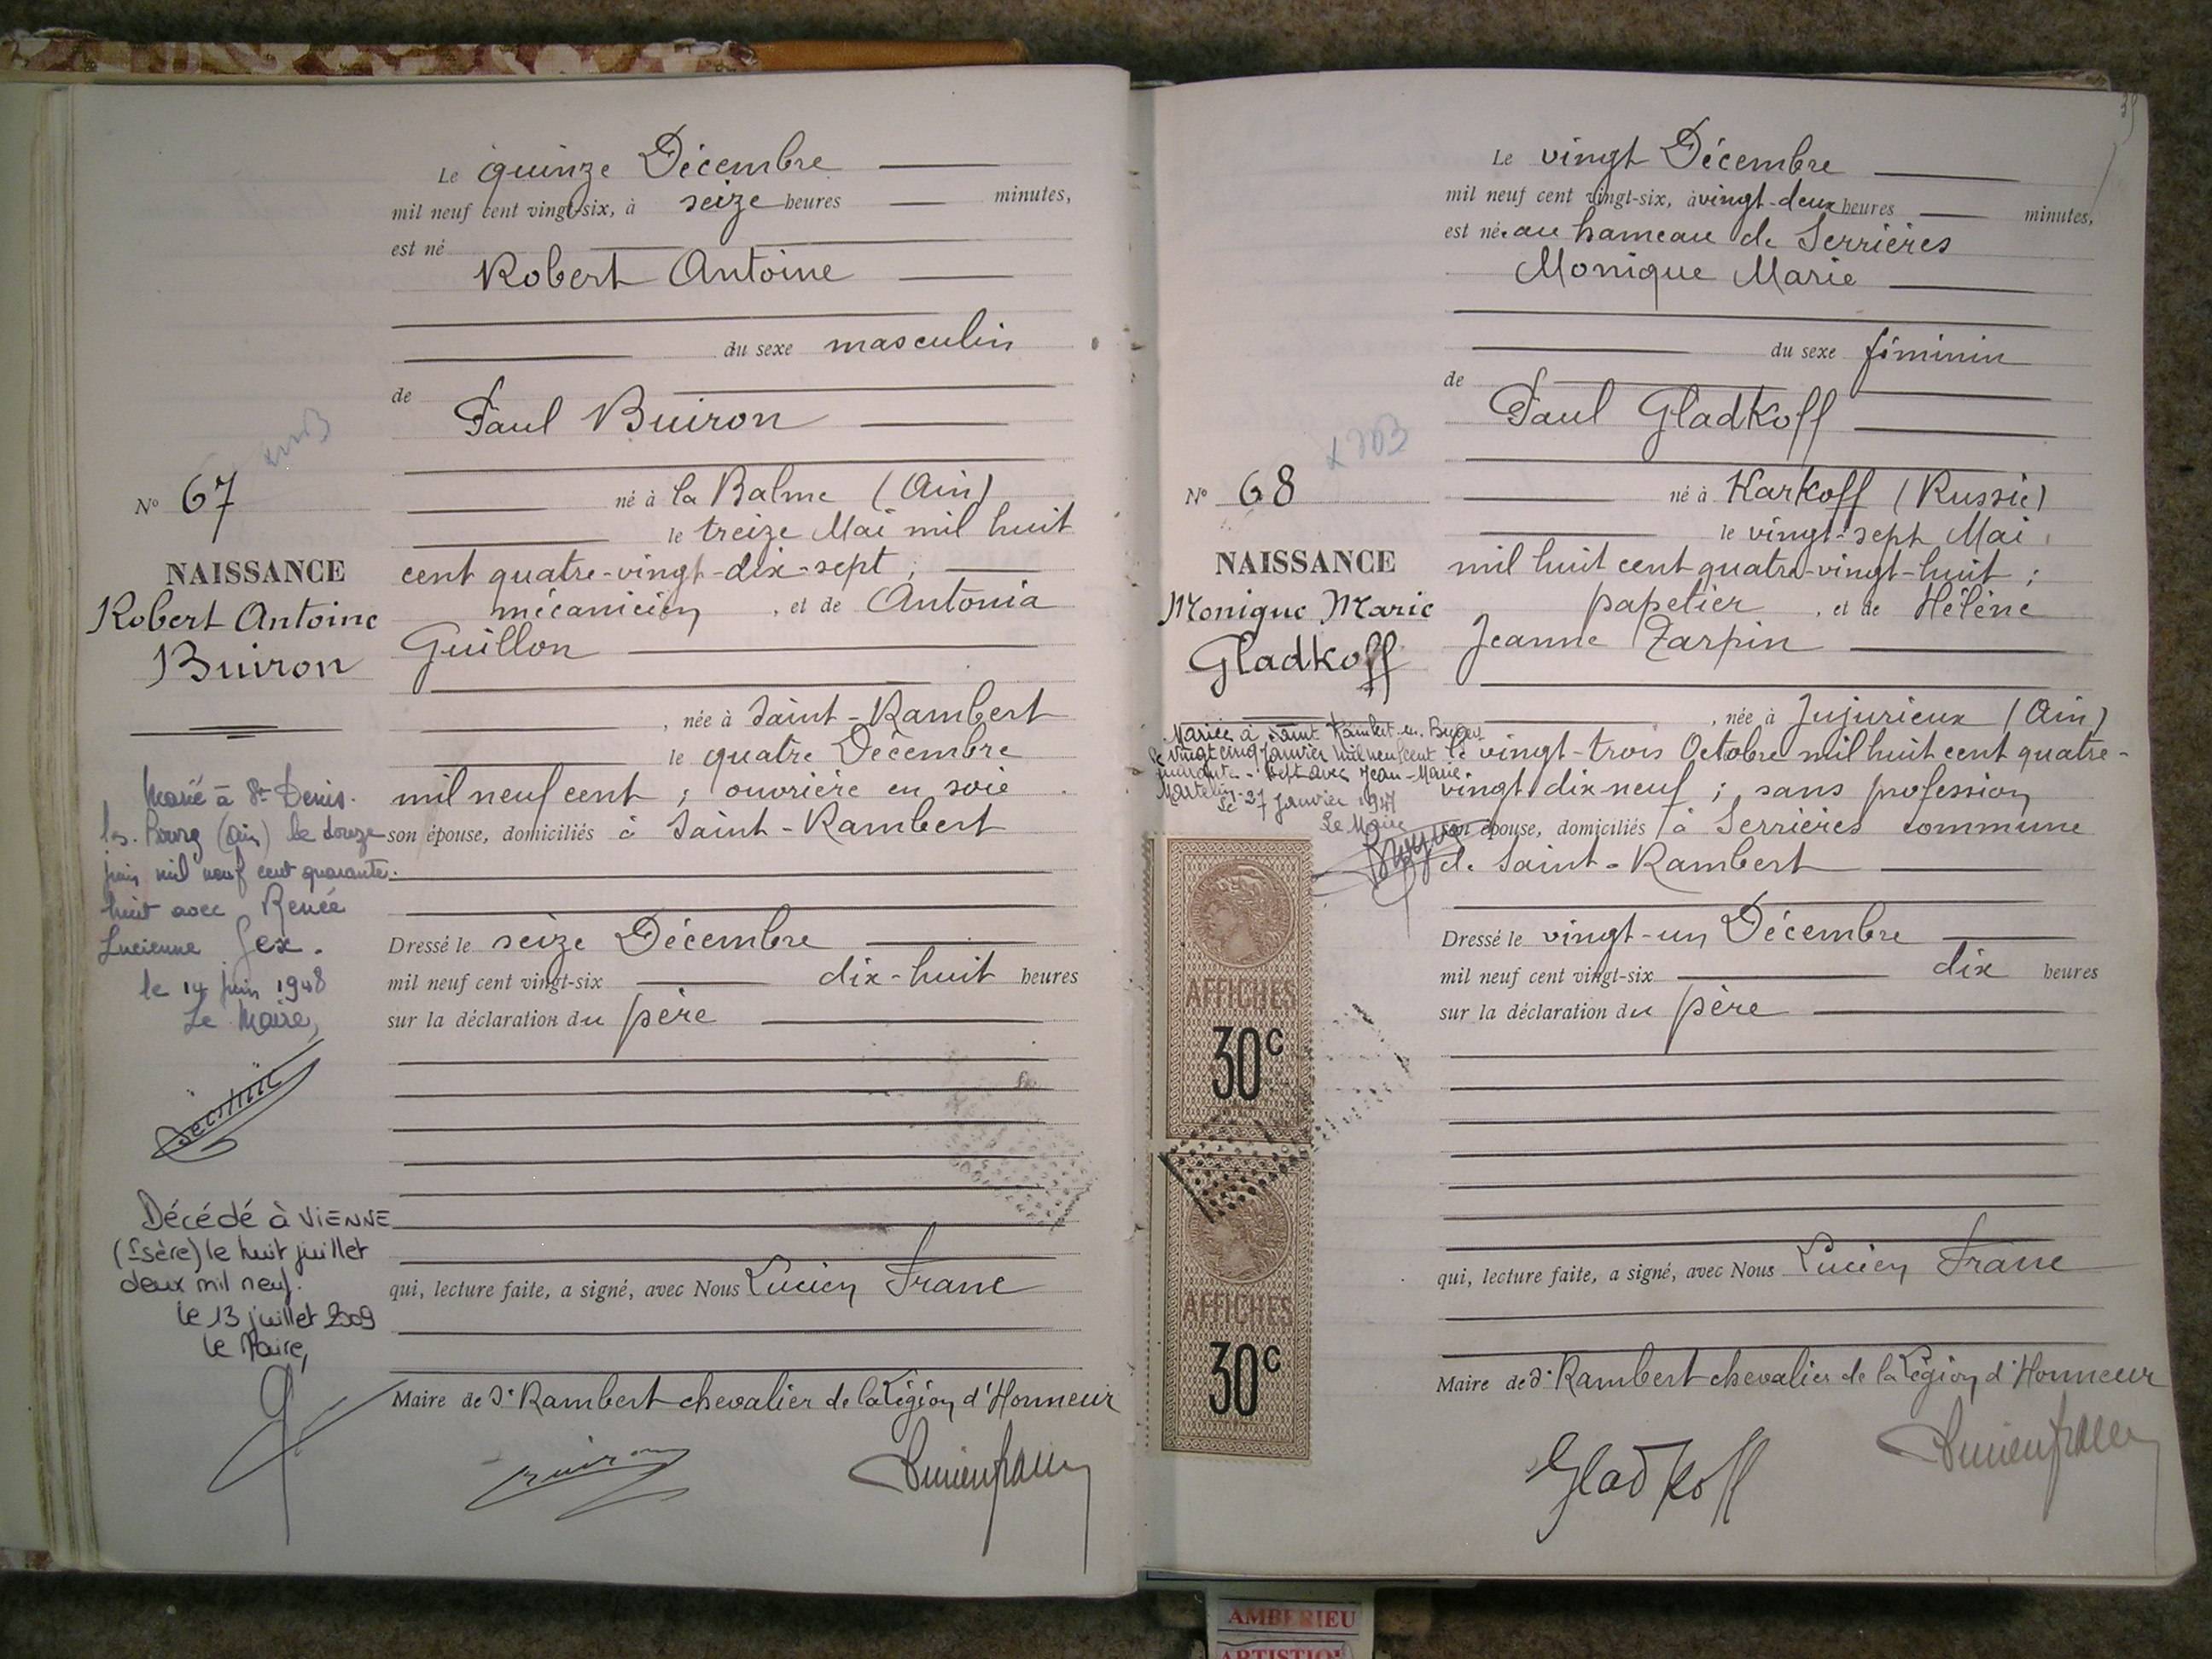 Le quinze Décembre
mil neuf cent vingt-six, à seize heures minutes,
est né
Robert Antoine
du sexe masculin
de
Paul Buiron
né à la Balme (Ain)
le treize Mai mil huit
cent quatre-vingt-dix-sept ;
mécanicien, et de Antonia
Guillon
, née à Saint-Rambert
le quatre Décembre
mil neuf cent ; ouvrière en soie
son épouse, domiciliés à Saint-Rambert
Dressé le seize Décembre
mil neuf cent vingt-six dix-huit heures
sur la déclaration du père
qui, lecture faite, a signé, avec Nous Lucien Franc
Maire de St Rambert chevalier de la Légion d'Honneur
Buiron
Lucien franc
N° 67
NAISSANCE
Robert Antoine
Buiron
Marié à St Denis-
les-Bourg (Ain) le douze
juin mil neuf cent quarante-
huit avec Renée
Lucienne Gex.
le 14 juin 1948
Le Maire,
Décédé à VIENNE
(Isère) le huit juillet
deux mil neuf.
le 13 juillet 2009
le Maire,
Le vingt Décembre
mil neuf cent vingt-six, à vingt-deux heures minutes,
est née au hameau de Serrières
Monique Marie
du sexe féminin
de
Paul Gladkoff
né à Karkoff (Russie)
le vingt-sept Mai
mil huit cent quatre-vingt-huit ;
papetier, et de Hélène
Jeanne Tarpin
, née à Jujurieux (Ain)
le vingt-trois Octobre mil huit cent quatre-
vingt dix-neuf ; sans profession
son épouse, domiciliés à Serrières commune
de Saint-Rambert
Dressé le vingt-un Décembre
mil neuf cent vingt-six dix heures
sur la déclaration du père
qui, lecture faite, a signé, avec Nous Lucien Franc
Maire de St Rambert chevalier de la Légion d'Honneur
Gladkoff
Lucien franc
N° 68
NAISSANCE
Monique Marie
Gladkoff
Mariée à Saint Rambert-en-Bugey
le vingt cinq Janvier mil neuf cent
quarante-sept avec Jean-Marie
Martelin
Le 27 Janvier 1947
Le Maire
AFFICHES
30c
AFFICHES
30c
AMBERIEU